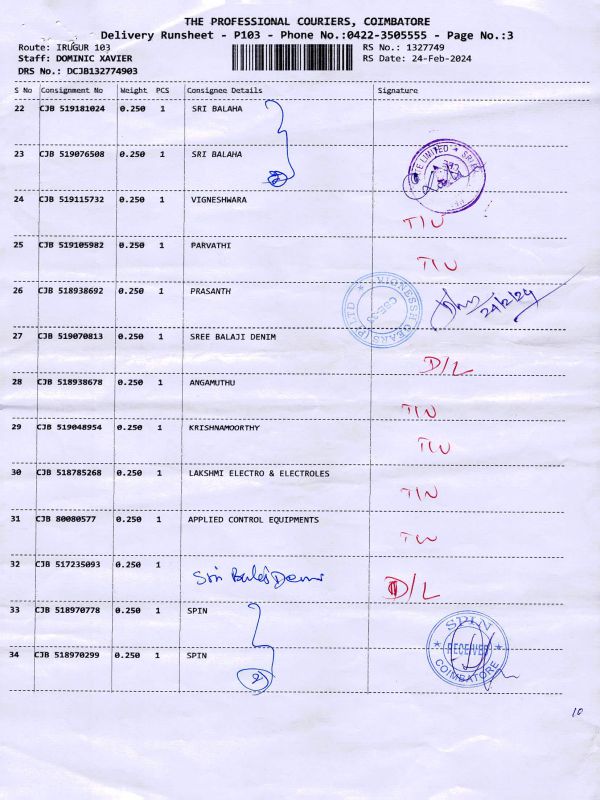 THE PROFESSIONAL COURIERS, COIMBATORE
Delivery Runsheet - P103 - Phone No.:0422-3505555 - Page No.:3
Route: IRUGUR 103 RS No.: 1327749
Staff: DOMINIC XAVIER RS Date: 24-Feb-2024
DRS No.: DCJB132774903
S No Consignment No Weight PCS Consignee Details Signature
22 CJB 519181024 0.250 1 SRI BALAHA
23 CJB 519076508 0.250 1 SRI BALAHA
2
24 CJB 519115732 0.250 1 VIGNESHWARA
T/N
25 CJB 519105982 0.250 1 PARVATHI
T/N
26 CJB 518938692 0.250 1 PRASANTH
VIGNESSH GEARS (P) LTD
CBE-33
24/2/24
27 CJB 519070813 0.250 1 SREE BALAJI DENIM
D/L
28 CJB 518938678 0.250 1 ANGAMUTHU
T/N
29 CJB 519048954 0.250 1 KRISHNAMOORTHY
T/N
30 CJB 518785268 0.250 1 LAKSHMI ELECTRO & ELECTROLES
T/N
31 CJB 80080577 0.250 1 APPLIED CONTROL EQUIPMENTS
T/N
32 CJB 517235093 0.250 1 Sri Balaji Denim
D/L
33 CJB 518970778 0.250 1 SPIN
SPIN
RECEIVED
COIMBATORE
34 CJB 518970299 0.250 1 SPIN
2
10